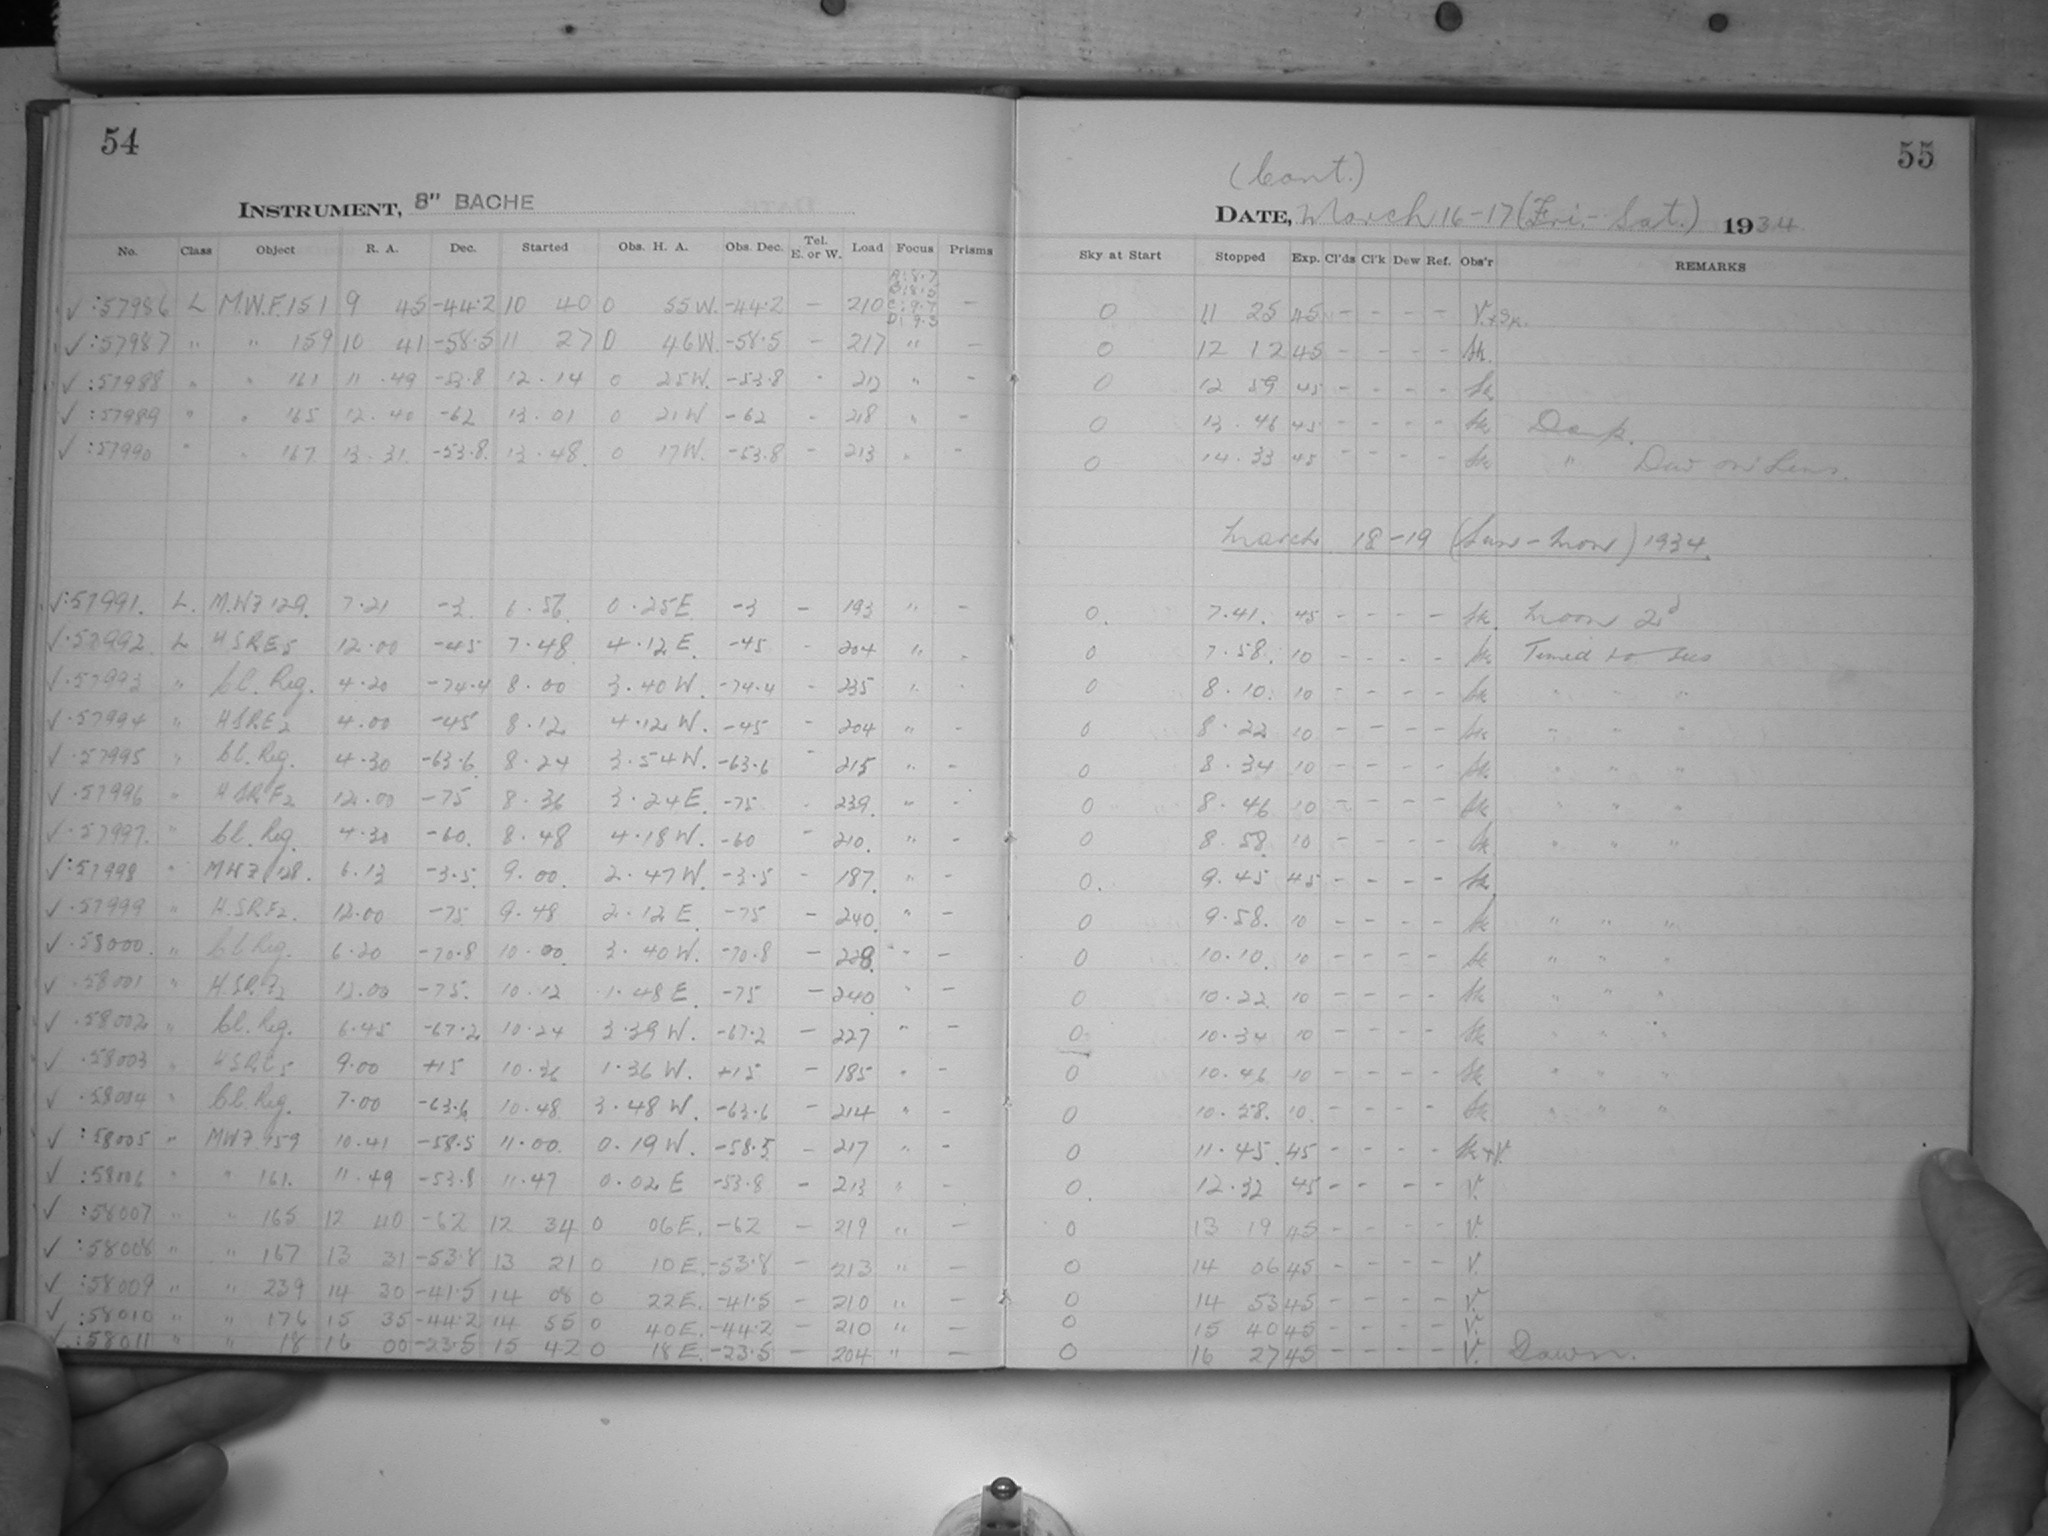 54
INSTRUMENT, 8" BACHE
No. Class Object R. A. Dec. Started Obs. H. A. Obs. Dec. Tel. E. or W. Load Focus Prisms
A: 8.7
B: 8.5
✓ :57986 L M.W.F. 151 9 45 -44.2 10 40 0 55 W. -44.2 - 210 C: 9.7 -
D: 9.3
✓ :57987 " " 159 10 41 -58.5 11 27 0 46 W. -58.5 - 217 " -
✓ :57988 " " 161 11.49 -53.8 12.14 0 25 W. -53.8 - 212 " -
✓ :57989 " " 165 12.40 -62 13.01 0 21 W -62 - 218 " -
✓ :57990 " " 167 13.31. -53.8. 13.48. 0 17 W. -53.8 - 213 " -
✓ :57991. L. M.WF 129. 7.21 -3 6.56 0.25 E -3 - 193 " -
✓ .57992. L HSRE5 12.00 -45 7.48 4.12 E. -45 - 204 " -
✓ .57993 " Cl. Reg. 4.20 -74.4 8.00 3.40 W. -74.4 - 235 " -
✓ .57994 " HSRE2 4.00 -45 8.12 4.12 W. -45 - 204 " -
✓ .57995 " Cl. Reg. 4.30 -63.6 8.24 3.54 W. -63.6 - 215 " -
✓ .57996 " HSRF2 12.00 -75 8.36 3.24 E. -75 - 239. " -
✓ .57997. " Cl. Reg. 4.30 -60. 8.48 4.18 W. -60 - 210. " -
✓ :57998 " MWF 128. 6.13 -3.5. 9.00. 2.47 W. -3.5 - 187. " -
✓ .57999 " H.SRF2. 12.00 -75 9.48 2.12 E -75 - 240. " -
✓ .58000. " Cl. Reg. 6.20 -70.8 10.00. 3.40 W. -70.8 - 228. " -
✓ .58001 " H.SRF2 12.00 -75. 10.12 1.48 E. -75 - 240 " -
✓ .58002 " Cl. Reg. 6.45 -67.2 10.24 3.39 W. -67.2 - 227 " -
✓ .58003 " HSRC5 9.00 +15 10.36 1.36 W. +15 - 185 " -
✓ .58004 " Cl. Reg. 7.00 -63.6 10.48 3.48 W. -63.6 - 214 " -
✓ :58005 " MWF 159 10.41 -58.5 11.00. 0.19 W. -58.5 - 217 " -
✓ :58006 " " 161. 11.49 -53.8 11.47 0.02 E -53.8 - 213 " -
✓ :58007 " " 165 12 40 -62 12 34 0 06 E. -62 - 219 " -
✓ :58008 " " 167 13 31 -53.8 13 21 0 10 E. -53.8 - 213 " -
✓ :58009 " " 239 14 30 -41.5 14 08 0 22 E. -41.5 - 210 " -
✓ :58010 " " 176 15 35 -44.2 14 55 0 40 E. -44.2 - 210 " -
✓ :58011 " " 18 16 00 -23.5 15 42 0 18 E. -23.5 - 204 " -
55
(Cont.)
DATE, March 16-17 (Fri.-Sat.) 1934.
Sky at Start Stopped Exp. Cl'ds Cl'k Dew Ref. Obs'r REMARKS
0 11 25 45 - - - - V.+Sk.
0 12 12 45 - - - - Sk.
0 12 59 45 - - - - Sk
0 13.46 45 - - - - Sk Damp.
0 14.33 45 - - - - Sk " Dew on Lens.
March 18-19 (Sun-Mon) 1934.
0. 7.41. 45 - - - - Sk. Moon 2d
0 7.58. 10 - - - - Sk Timed to secs
0 8.10. 10 - - - - Sk " " "
0 8.22 10 - - - - Sk " " "
0 8.34 10 - - - - Sk " " "
0 8.46 10 - - - - Sk " " "
0 8.58. 10 - - - - Sk " " "
0. 9.45 45 - - - - Sk
0 9.58. 10 - - - - Sk " " "
0 10.10. 10 - - - - Sk " " "
0 10.22 10 - - - - Sk " " "
0 10.34 10 - - - - Sk " " "
0 10.46 10 - - - - Sk " " "
0 10.58. 10. - - - - Sk " " "
0 11.45. 45 - - - - Sk+V.
0. 12.32 45 - - - - V.
0 13 19 45 - - - - V.
0 14 06 45 - - - - V.
0 14 53 45 - - - - V.
0 15 40 45 - - - - V.
0 16 27 45 - - - - V. Dawn.